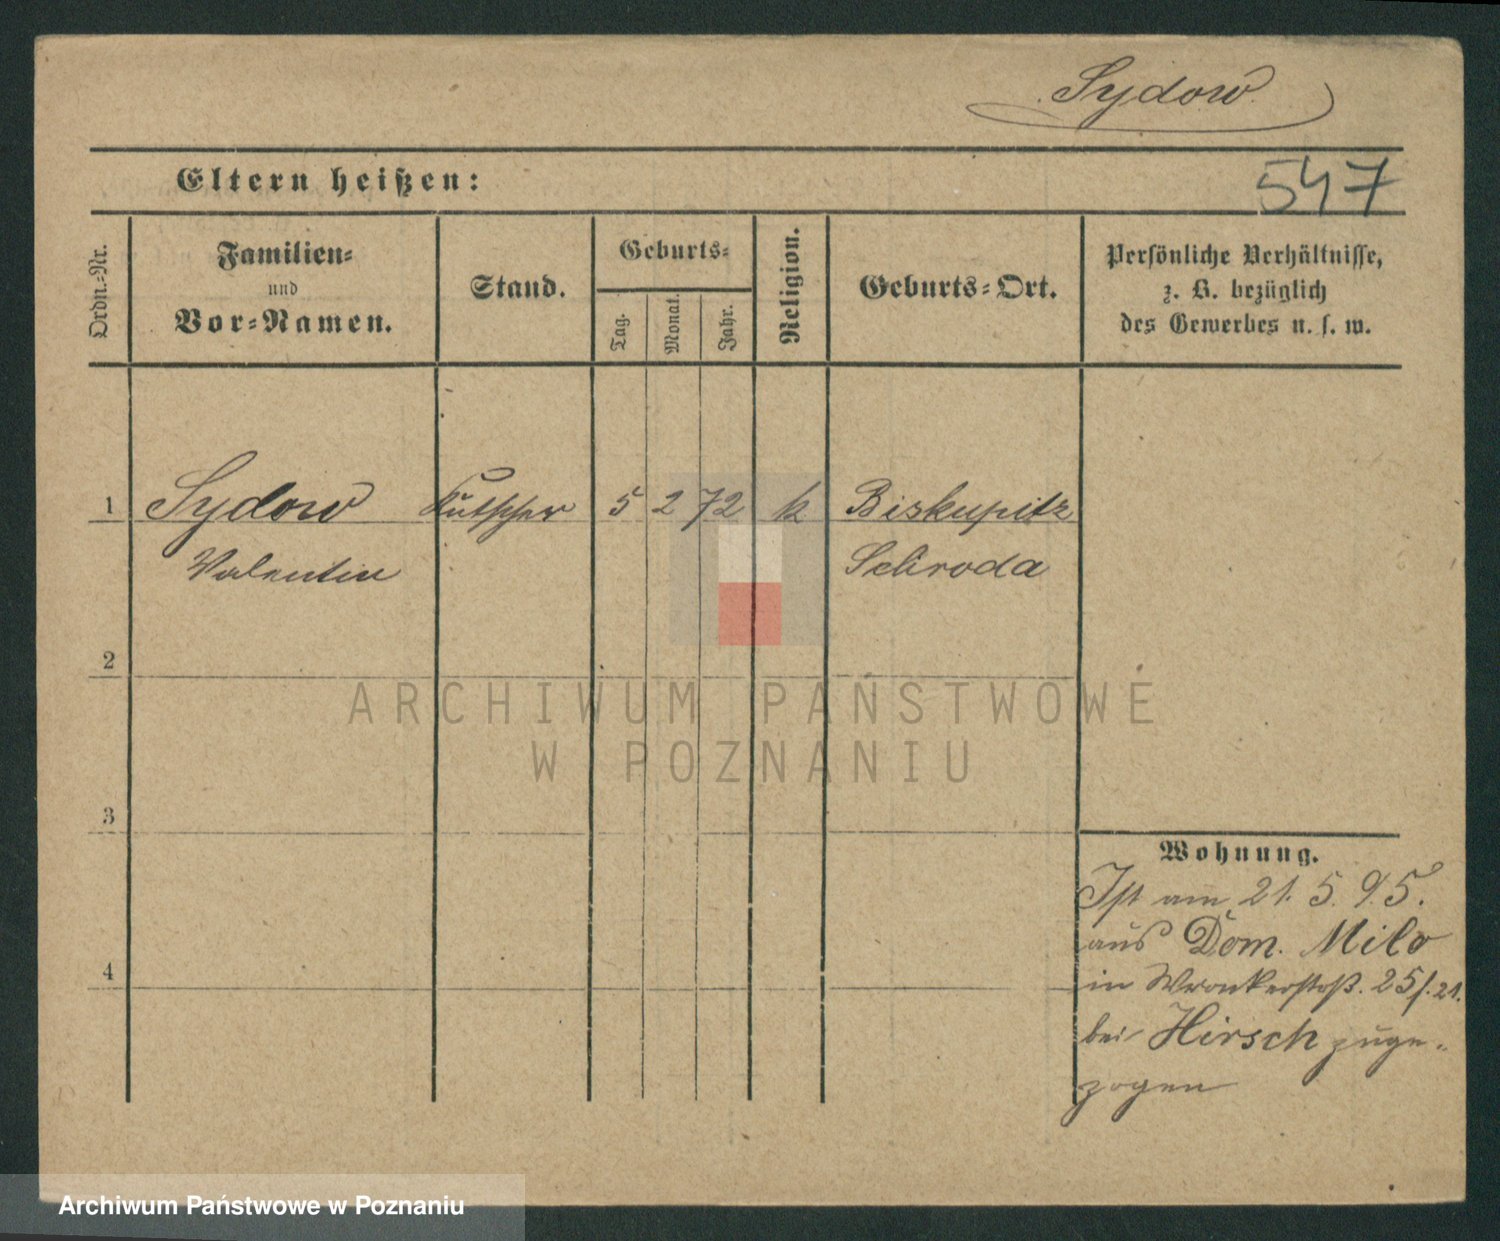 Sydow
Eltern heißen:
547
Ordn.-Nr.
Familien-
und
Vor-Namen.
Stand.
Geburts-
Tag.
Monat.
Jahr.
Religion.
Geburts-Ort.
Persönliche Verhältnisse,
z. B. bezüglich
des Gewerbes u. s. w.
1 Sydow Kutscher 5 2 72 k Biskupitz
Valentin Schroda
2
ARCHIWUM PAŃSTWOWE
W POZNANIU
3
Wohnung.
Ist am 21. 5. 95.
aus Dom. Milo
4
in Wronkerstaß. 25/.21.
bei Hirsch zuge-
zogen
Archiwum Państwowe w Poznaniu